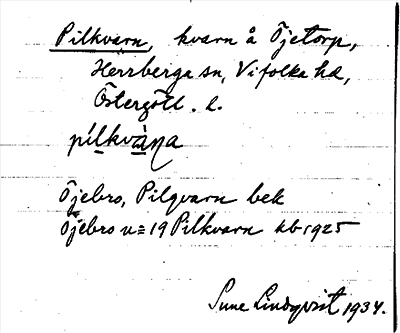 Pilkvarn, kvarn å Öjetorp,
Herrberga sn, Vifolka hd,
Östergötl. l.
pilkvàṇa
Öjebro, Pilqvarn bek
Öjebro n= 19 Pilkvarn kb 1925
Sune Lindqvist 1934.